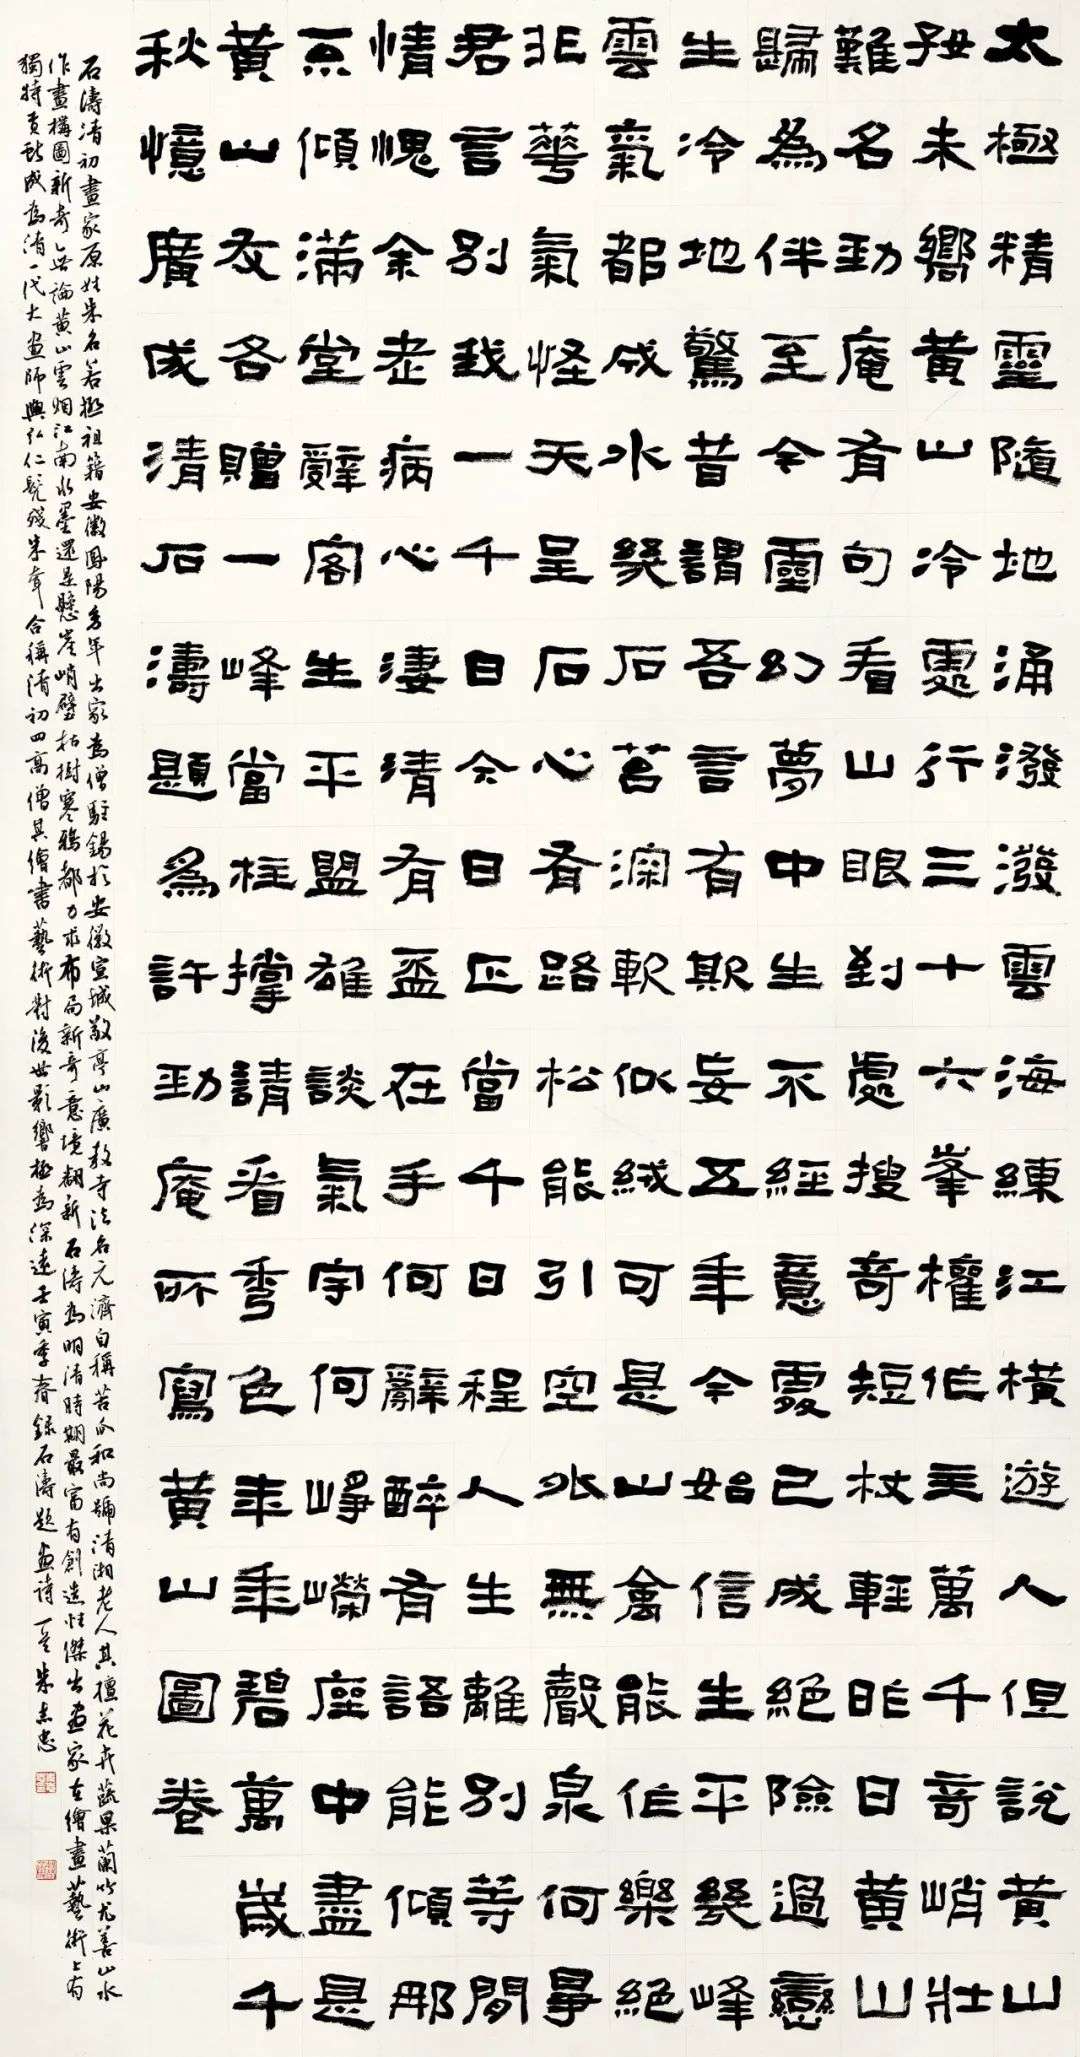 太極精靈隨地涌潑潑雲海練江橫遊人但說黃山
好未嚮黃山冷處行三十六峯權作主萬千奇峭壯
難名勁庵有句看山眼到處搜奇短杖輕昨日黃山
歸為伴至今靈幻夢中生不經意處已成絕險過巒
生冷地驚昔謂吾言有欺妄五年今始信生平幾峰
雲氣都成水幾石苔深軟似絨可是山禽能作樂絕
非華氣怪天呈石心有路松能引空外無聲泉何事
君言別我一千日今日正當千日程人生離別等閒
情愧余老病心淒清有盃在手何辭醉有語能傾那
不傾滿堂辭客生平盟雄談氣宇何崢嶸座中盡是
黃山友各贈一峰當柱撐請看秀色年年碧萬歲千
秋憶廣成清石濤題為許勁庵所寫黃山圖卷
石濤清初畫家原姓朱名若極祖籍安徽鳳陽多年出家為僧駐錫於安徽宣城敬亭山廣教寺法名元濟自稱苦瓜和尚號清湘老人其擅花卉蔬果蘭竹尤善山水
作畫構圖新奇無論黃山雲烟江南水墨還是懸崖峭壁枯樹寒鴉都力求布局新奇意境翻新石濤為明清時期最富有創造性傑出畫家在繪畫藝術上有
獨特貢獻成為清一代大畫師與弘仁髡殘朱耷合稱清初四高僧其繪書藝術對後世影響極為深遠壬寅季春錄石濤題畫詩一首朱志忠